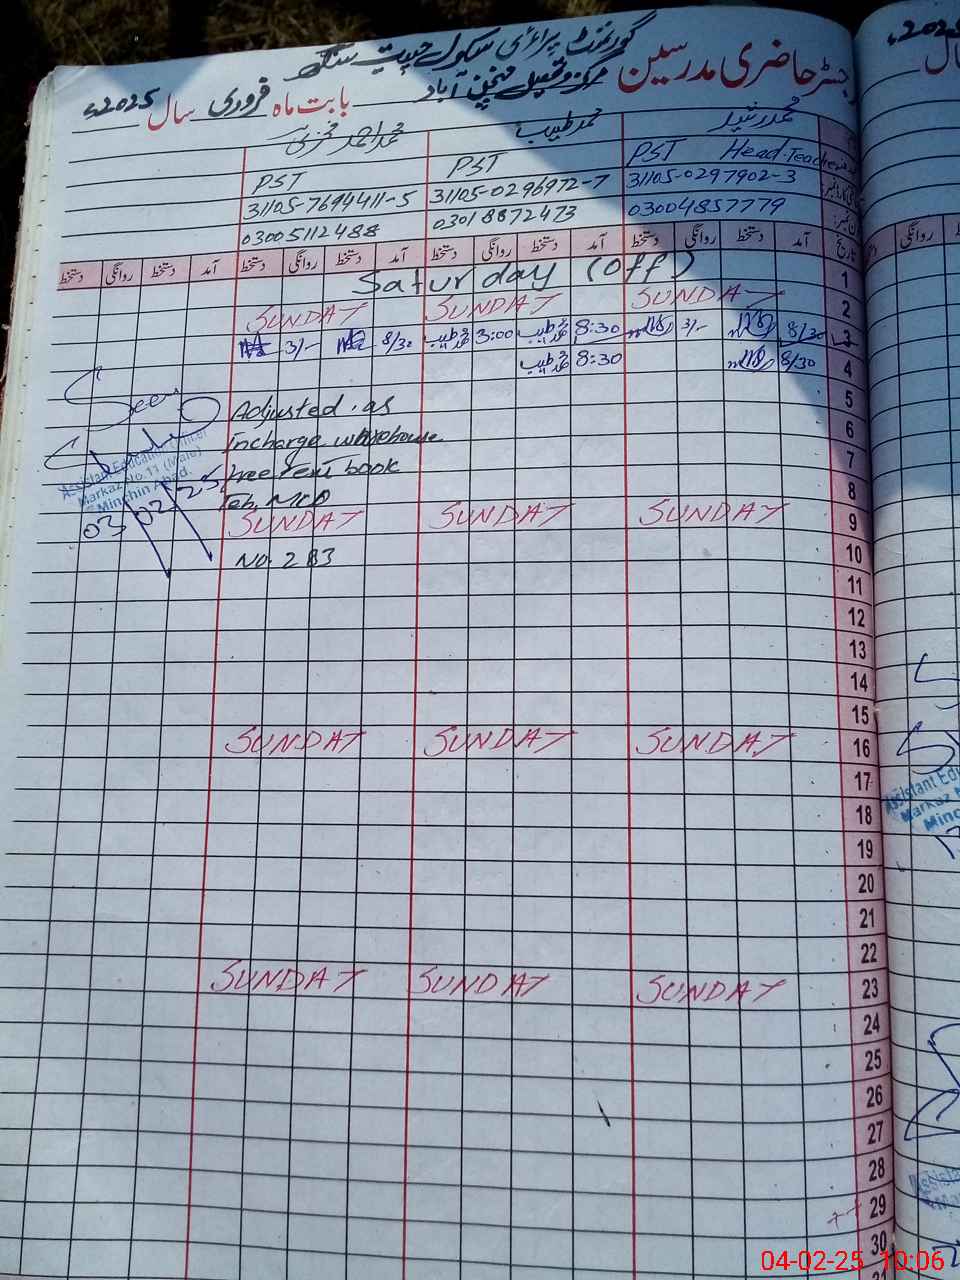 گورنمنٹ پرائمری سکول حبیب سنگھ
رجسٹر حاضری مدرسین مرکز و تحصیل منچن آباد بابت ماہ فروری سال 2025ء
محمد رشید محمد طیب محمد احمد فخری
PST Head-Teacher PST PST
31105-0297902-3 31105-0296972-7 31105-7694411-5
03004857779 03018872473 03005112488
تاریخ آمد دستخط روانگی دستخط آمد دستخط روانگی دستخط آمد دستخط روانگی دستخط آمد دستخط روانگی دستخط
1 Saturday (off)
2 SUNDAY SUNDAY SUNDAY
3 8/30 3/- 8:30 محمد طیب 3:00 محمد طیب 8/30 3/-
4 8/30 8:30 محمد طیب
5 Adjusted as
6 Incharge warehouse
7 free text book
8
9 SUNDAY SUNDAY SUNDAY
10 No. 283
11
12
13
14
15
16 SUNDAY SUNDAY SUNDAY
17
18
19
20
21
22
23 SUNDAY SUNDAY SUNDAY
24
25
26
27
28
29
30
Seen
Assistant Education Officer
Markaz No.11 (Male)
Minchin Abad.
03/02/25
2025
Assistant Edu
Markaz N
Minc
04-02-25 10:06